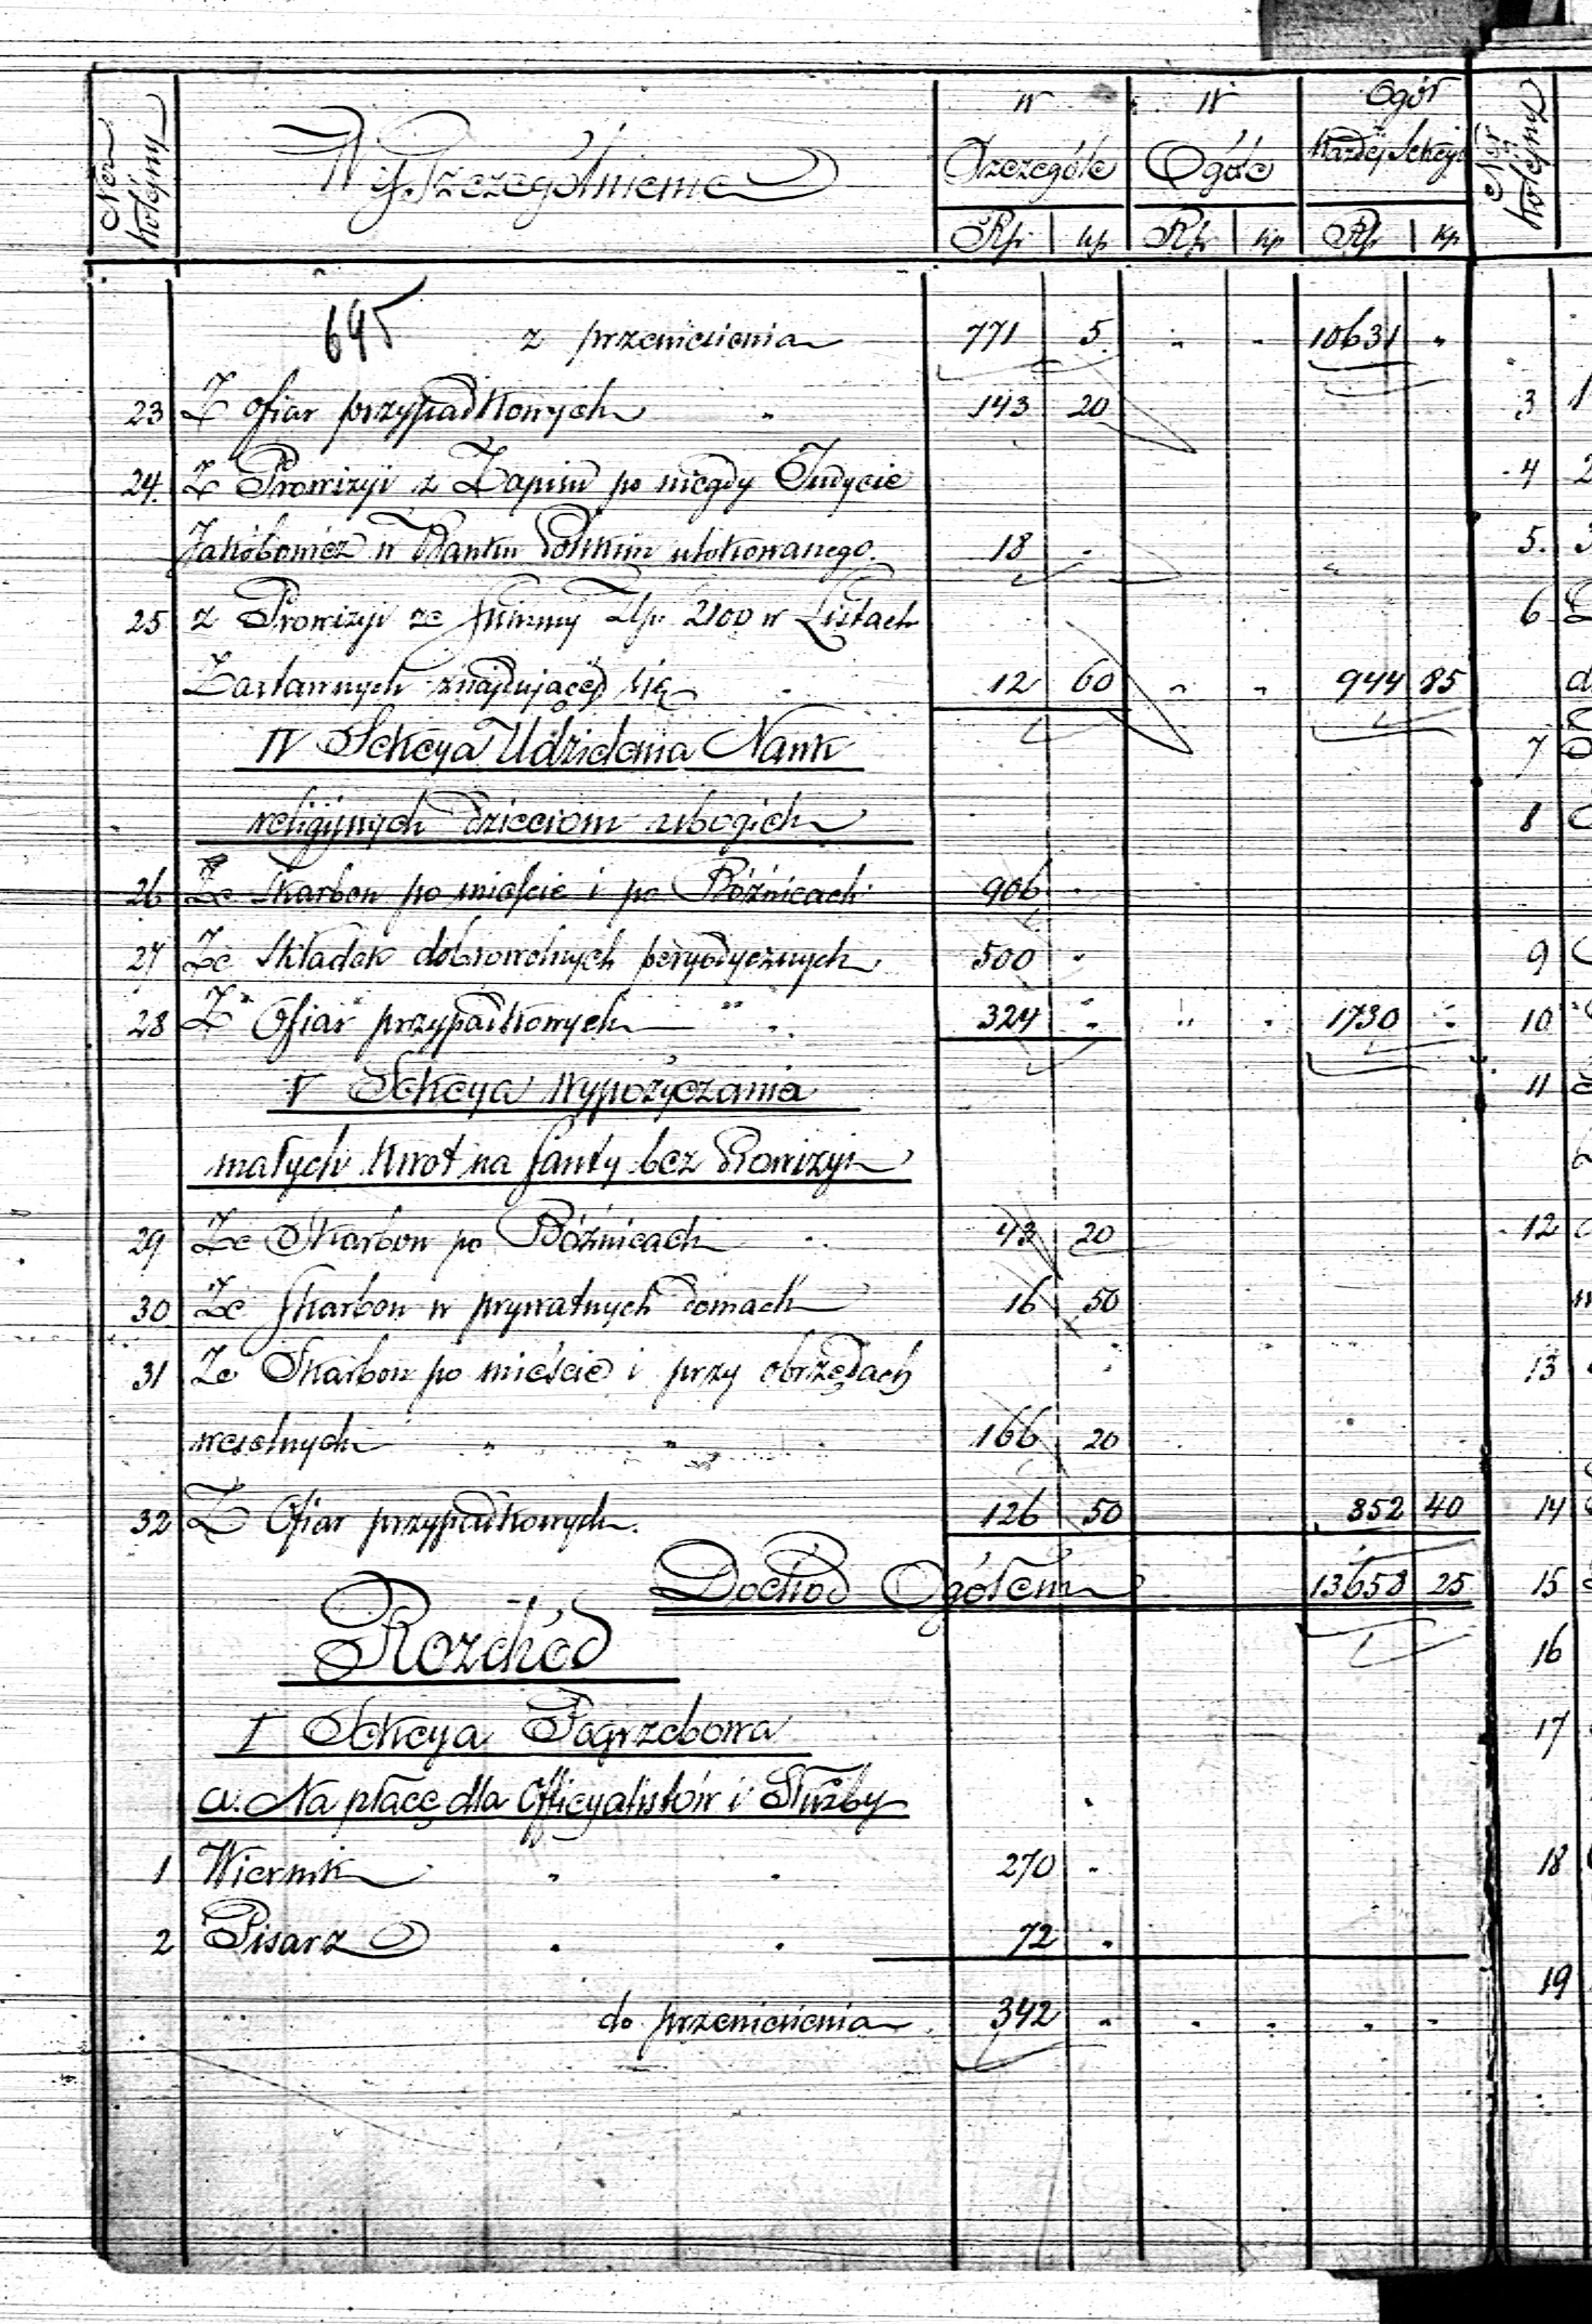 Nër kolejny Wyszczególnienie w Szczególe w Ogóle Ogół Każdej Sekcyi Nër kolejny
Rsr kp Rsr kp Rsr kp
645 z przeniesienia 771 5 " " 10631 "
23 Z ofiar przypadkowych " 143 20
24. Z Prowizyi z Zapisu po niegdy Judycie
Jakóbowicz w Banku Polskim ulokowanego. 18 "
25 z Prowizyi ze summy Złp. 2100 w Listach
Zastawnych znajdującej się " 12 60 " " 944 85
IV Sekcya Udzielenia Nauk
religijnych dzieciom ubogich
26 Ze Skarbon po mieście i po Bóźnicach 906 "
27 Ze Składek dobrowolnych peryodycznych 500 "
28 Z Ofiar przypadkowych " " 324 " " " 1730 "
V Sekcya wypożyczania
małych kwot na fanty bez Prowizyi
29 Ze Skarbon po Bóźnicach " 43 20
30 Ze Skarbon w prywatnych domach 16 50
31 Ze Skarbon po mieście i przy obrzędach
weselnych " " 166 20
32 Z Ofiar przypadkowych. 126 50 352 40
Dochód Ogółem 13658 25
Rozchód
I Sekcya Pogrzebowa
a. Na płacę dla Officyalistów i Służby
1 Wiernik " " 270 "
2 Pisarz " " 72 "
do przeniesienia 342 " " " " "
3
4
5.
6
7
8
9
10
11
12
13
14
15
16
17
18
19